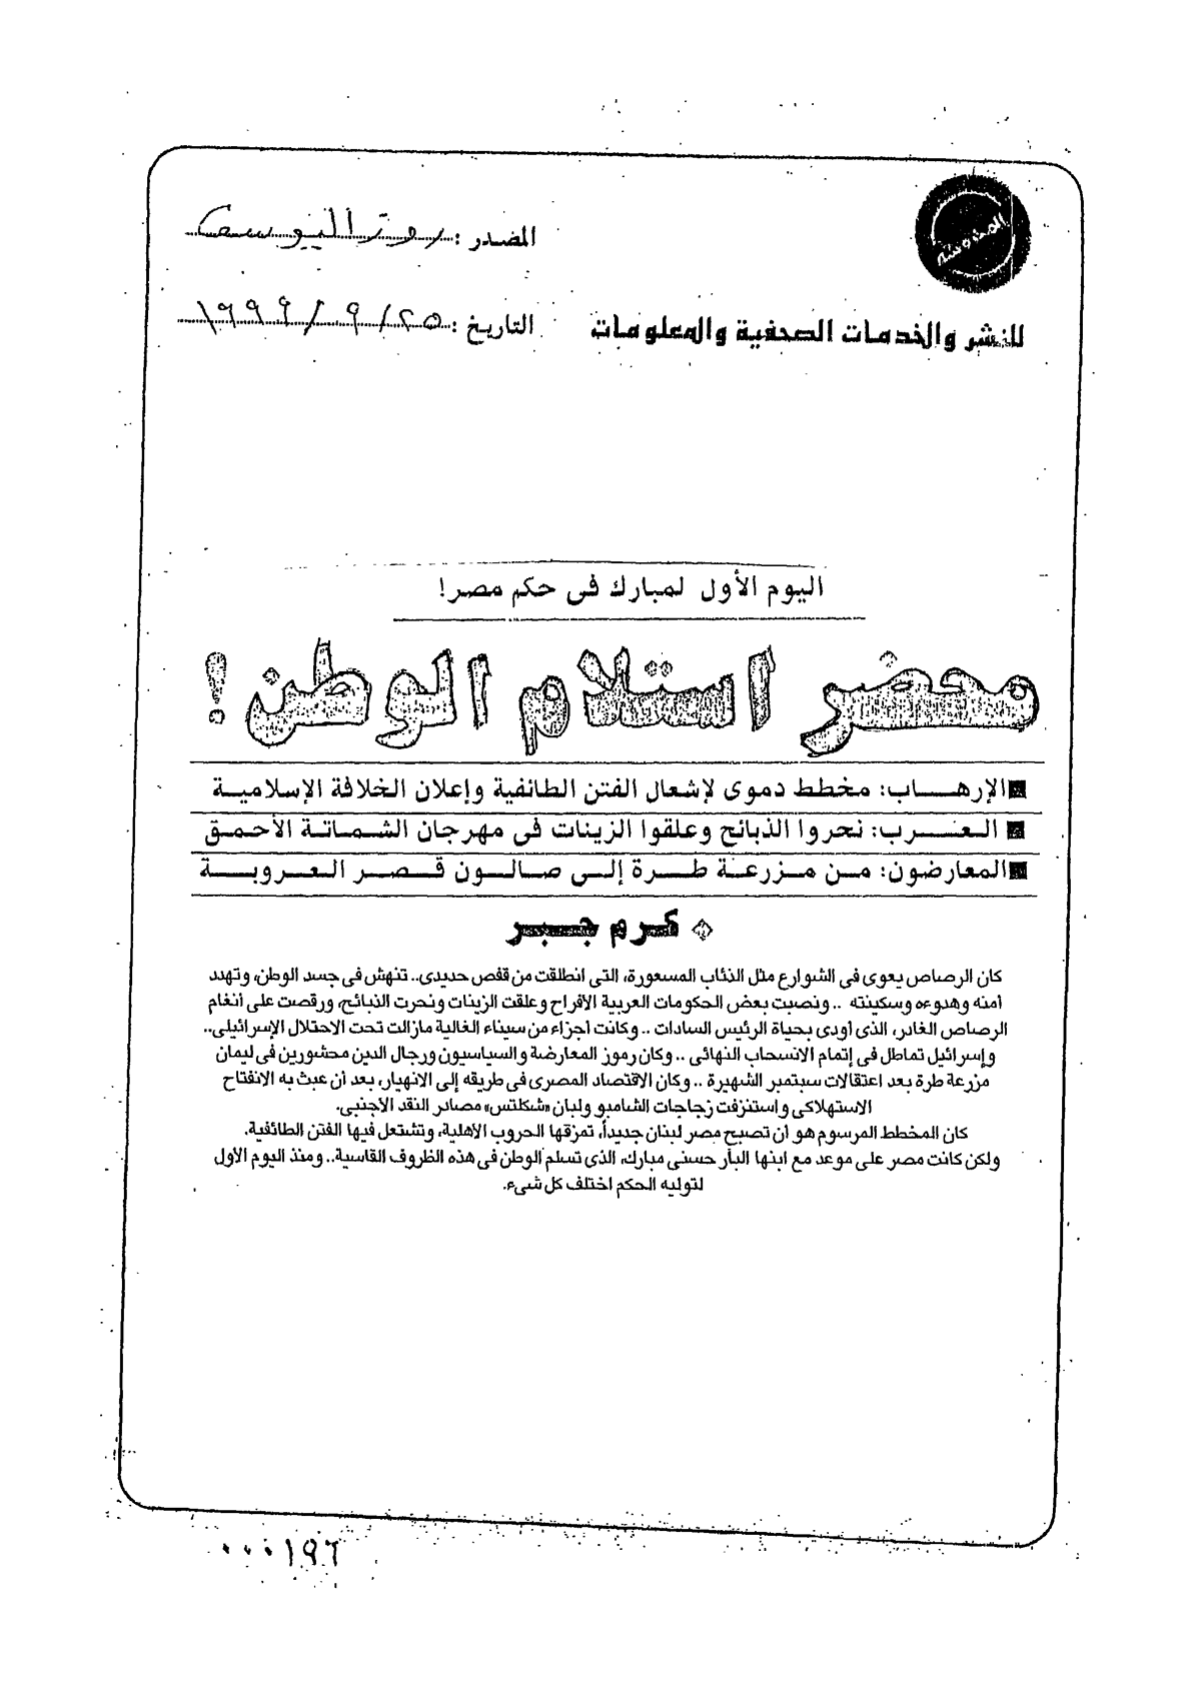 المصدر : روز اليوسف
للنشر والخدمات الصحفية والمعلومات
التاريخ : ٢٥ / ٩ / ١٩٩٩
اليوم الأول لمبارك فى حكم مصر!
محضر استلام الوطن!
■ الإرهـــاب: مخطط دموى لإشعال الفتن الطائفية وإعلان الخلافة الإسلاميـة
■ الـعـــرب: نحروا الذبائح وعلقوا الزينات فى مهرجان الشـمـاتـة الأحـمـق
■ المعارضون: مـن مـزرعـة طـرة إلـى صـالـون قـصـر العـروبـة
◈ كـرم جـبـر
كان الرصاص يعوى فى الشوارع مثل الذئاب المسعورة، التى انطلقت من قفص حديدى.. تنهش فى جسد الوطن، وتهدد
أمنه وهدوءه وسكينته .. ونصبت بعض الحكومات العربية الأفراح وعلقت الزينات ونحرت الذبائح، ورقصت على أنغام
الرصاص الغادر، الذى أودى بحياة الرئيس السادات .. وكانت أجزاء من سيناء الغالية مازالت تحت الاحتلال الإسرائيلى..
وإسرائيل تماطل فى إتمام الانسحاب النهائى .. وكان رموز المعارضة والسياسيون ورجال الدين محشورين فى ليمان
مزرعة طرة بعد اعتقالات سبتمبر الشهيرة .. وكان الاقتصاد المصرى فى طريقه إلى الانهيار، بعد أن عبث به الانفتاح
الاستهلاكى واستنزفت زجاجات الشامبو ولبان «شكلتس» مصادر النقد الأجنبى.
كان المخطط المرسوم هو أن تصبح مصر لبنان جديداً، تمزقها الحروب الأهلية، وتشتعل فيها الفتن الطائفية.
ولكن كانت مصر على موعد مع ابنها البار حسنى مبارك، الذى تسلم الوطن فى هذه الظروف القاسية.. ومنذ اليوم الأول
لتوليه الحكم اختلف كل شىء.
٠٠٠١٩٦